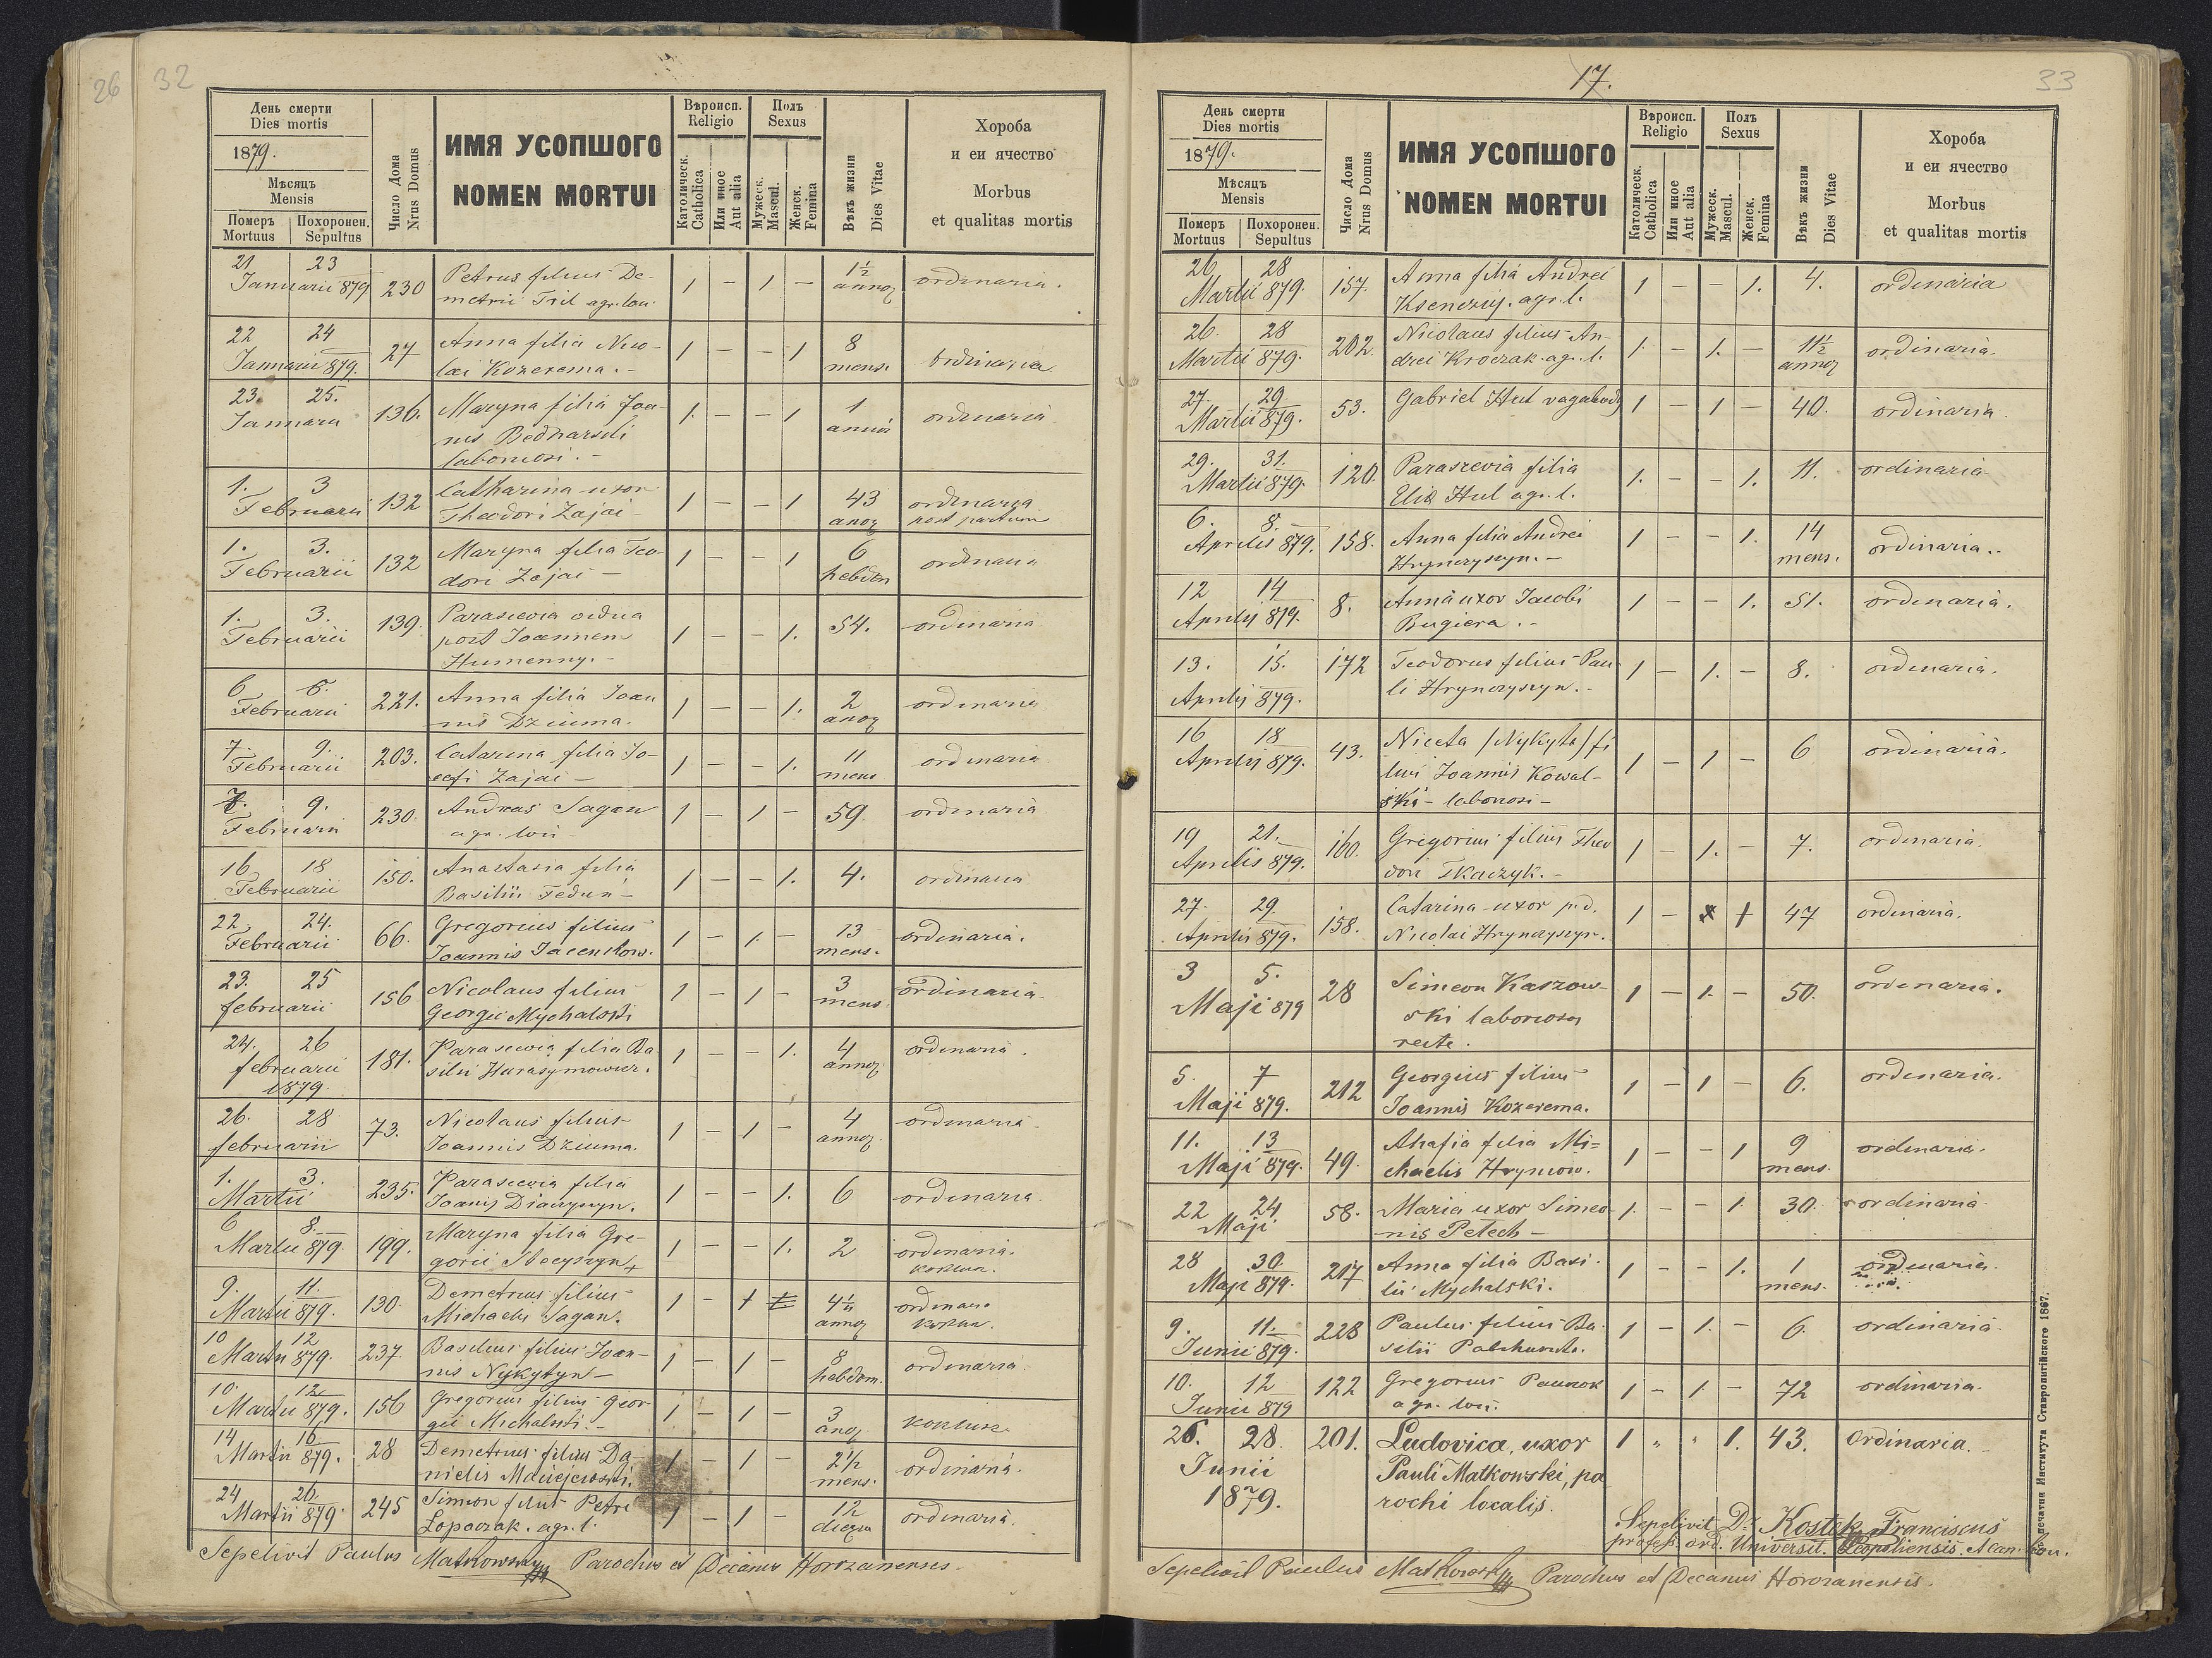 26 32
День смерти
Dies mortis
1879.
Мѣсяцъ
Mensis
Померъ Похоронен.
Mortuus Sepultus
Число Дома
Nrus Domus
ИМЯ УСОПШОГО
NOMEN MORTUI
Вѣроисп.
Religio
Католическ.
Catholica
Или иное
Aut alia
Полъ
Sexus
Мужеск.
Mascul.
Женск.
Femina
Вѣкъ жизни
Dies Vitae
Хороба
и еи ячество
Morbus
et qualitas mortis
21 23
Januarii 879 230 Petrus filius De- 1 - 1 - 1½ ordinaria.
metrii
22 24
Januarii 879. 27 Anna filia Nico- 1 - - 1 8 ordinaria
lai Kozerema. - mens.
23. 25.
Januarii 136. Maryna filia Joa- 1. - - 1 1 ordinaria
nis Bednarski
1. 3
Februarii 132 Catharina uxor 1 - - 1 43 ordinaria
Theodori Zajac - post partum
1. 3.
Februarii 132 Maryna filia Teo- 1 - - 1 6 ordinaria
dori Zajac - hebdom
1. 3.
Februarii 139. Parascevia vidua 1 - - 1. 54. ordinaria
post Joannem
Humenny. -
6 8.
Februarii 221. Anna filia Joan 1 - - 1. 2 ordinaria
nis Dziuma.
7. 9.
Februarii 203. Catarina filia Jo- 1 - - 1. 11 ordinaria
sefi Zajac - mens
7. 9.
Februarii 230. Andreas Sagan 1 - 1 - 59 ordinaria
agr.
16 18
Februarii 150. Anastasia filia 1 - - 1. 4. ordinaria
Basilii Fedun -
22 24.
Februarii 66. Gregorius filius 1 - 1. - 13 ordinaria.
Joannis mens.
23. 25
februarii 156 Nicolaus filius 1 - 1 - 3 ordinaria.
Georgii Mychalski mens.
24. 26
februarii 181. Parascevia filia Ba- 1 - - 1. 4 ordinaria.
1879. silii Harasymowicz.
26. 28
februarii 73. Nicolaus filius 1 - 1 - 4 ordinaria
Joannis Dziuma.
1. 3.
Martii 235. Parascevia filia 1 - - 1. 6 ordinaria.
Joanis Diaczyszyn.
6 8.
Martii 879. 199. Maryna filia Gre- 1 - - 1. 2 ordinaria.
gorii
9. 11.
Martii 879. 130. Demetrius filius 1 - 1 ordinaria
Michaelis Sagan.
10 12
Martii 879. 237. Basilius filius Joan- 1 - 1 - 8 ordinaria
nis Nykytyn - hebdom.
10. 12
Martii 879. 156 Gregorius filius Geor 1 - 1 - 3
gii Michalski. -
14 16
Martii 879. 28 Demetrius filius Da- 1 - 1 - 2½ ordinaria.
nielis mens.
24 26
Martii 879. 245 Simeon filius Petri 1 - 1 - 12 ordinaria.
Lopaczak. agr. l.
Sepelivit Paulus Matkowski Parochus et Decanus Horozanensis.
17. 33
День смерти
Dies mortis
1879.
Мѣсяцъ
Mensis
Померъ Похоронен.
Mortuus Sepultus
Число Дома
Nrus Domus
ИМЯ УСОПШОГО
NOMEN MORTUI
Вѣроисп.
Religio
Католическ.
Catholica
Или иное
Aut alia
Полъ
Sexus
Мужеск.
Mascul.
Женск.
Femina
Вѣкъ жизни
Dies Vitae
Хороба
и еи ячество
Morbus
et qualitas mortis
26 28
Martii 879. 157. Anna filia Andrei 1 - - 1. 4. ordinaria
agr. l.
26. 28
Martii 879. 202. Nicolaus filius An- 1. - 1. - 11½ ordinaria.
drei Kroczak. agr. l.
27. 29
Martii 879. 53. Gabriel Hul 1 - 1 - 40. ordinaria.
29. 31.
Martii 879. 120. Paraszevia filia 1. - - 1. 11. ordinaria
Eliæ Hul agr. l.
6. 8.
Aprilis 879. 158. Anna filia Andrei 1 - - 1. 14 ordinaria. -
Hrynczyszyn. - mens.
12 14
Aprilis 879. 8. Anna uxor Jacobi 1 - - 1. 51. ordinaria.
Bugiera. -
13. 15.
Aprilis 879. 172 Teodorus filius Pau- 1 - 1. - 8. ordinaria.
li Hrynczyszyn. -
16 18
Aprilis 879. 43. Niceta /Nykyta/ fi 1 - 1 - 6 ordinaria.
lius Joannis Kowal-
ski -
19 21.
Aprilis 879. 160. Gregorius filius Theo 1 - 1. - 7. ordinaria.
dori Tkaczyk. -
27. 29
Aprilis 879. 158. Catarina uxor p. d. 1 - 47 ordinaria.
Nicolai Hrynczyszyn.
3 5.
Maji 879 28 Simeon Kaszow- 1 - 1. - 50. ordinaria.
ski
5. 7
Maji 879. 212 Georgius filius 1 - 1 - 6. ordinaria.
Joannis Kozerema.
11. 13
Maji 879. 49. Ahafia filia Mi= 1 - - 1 9 ordinaria.
chaelis Hryniow. mens.
22 24
Maji 58. Maria uxor Simeo 1. - - 1. 30. ordinaria.
nis Petech -
28 30
Maji 879. 217 Anna filia Basi- 1 - - 1. 1 ordinaria.
lii Mychalski. mens.
9. 11.
Junii 879. 228 Paulus filius Ba- 1 - 1. - 6. ordinaria.
silii
10. 12
Junii 879 122 Gregorius 1 - 1. - 72 ordinaria.
agr.
26. 28. 201. Ludovica, uxor 1 " " 1. 43. Ordinaria. -
Junii Pauli Matkowski, pa
1879. rochi localis.
Sepelivit Dr. Kostek Franciscus
profess. ord. Universit. Leopoliensis.
Sepelivit Paulus Matkowski Parochus et Decanus Horozanensis.
печатня Института Ставропигійского 1867.